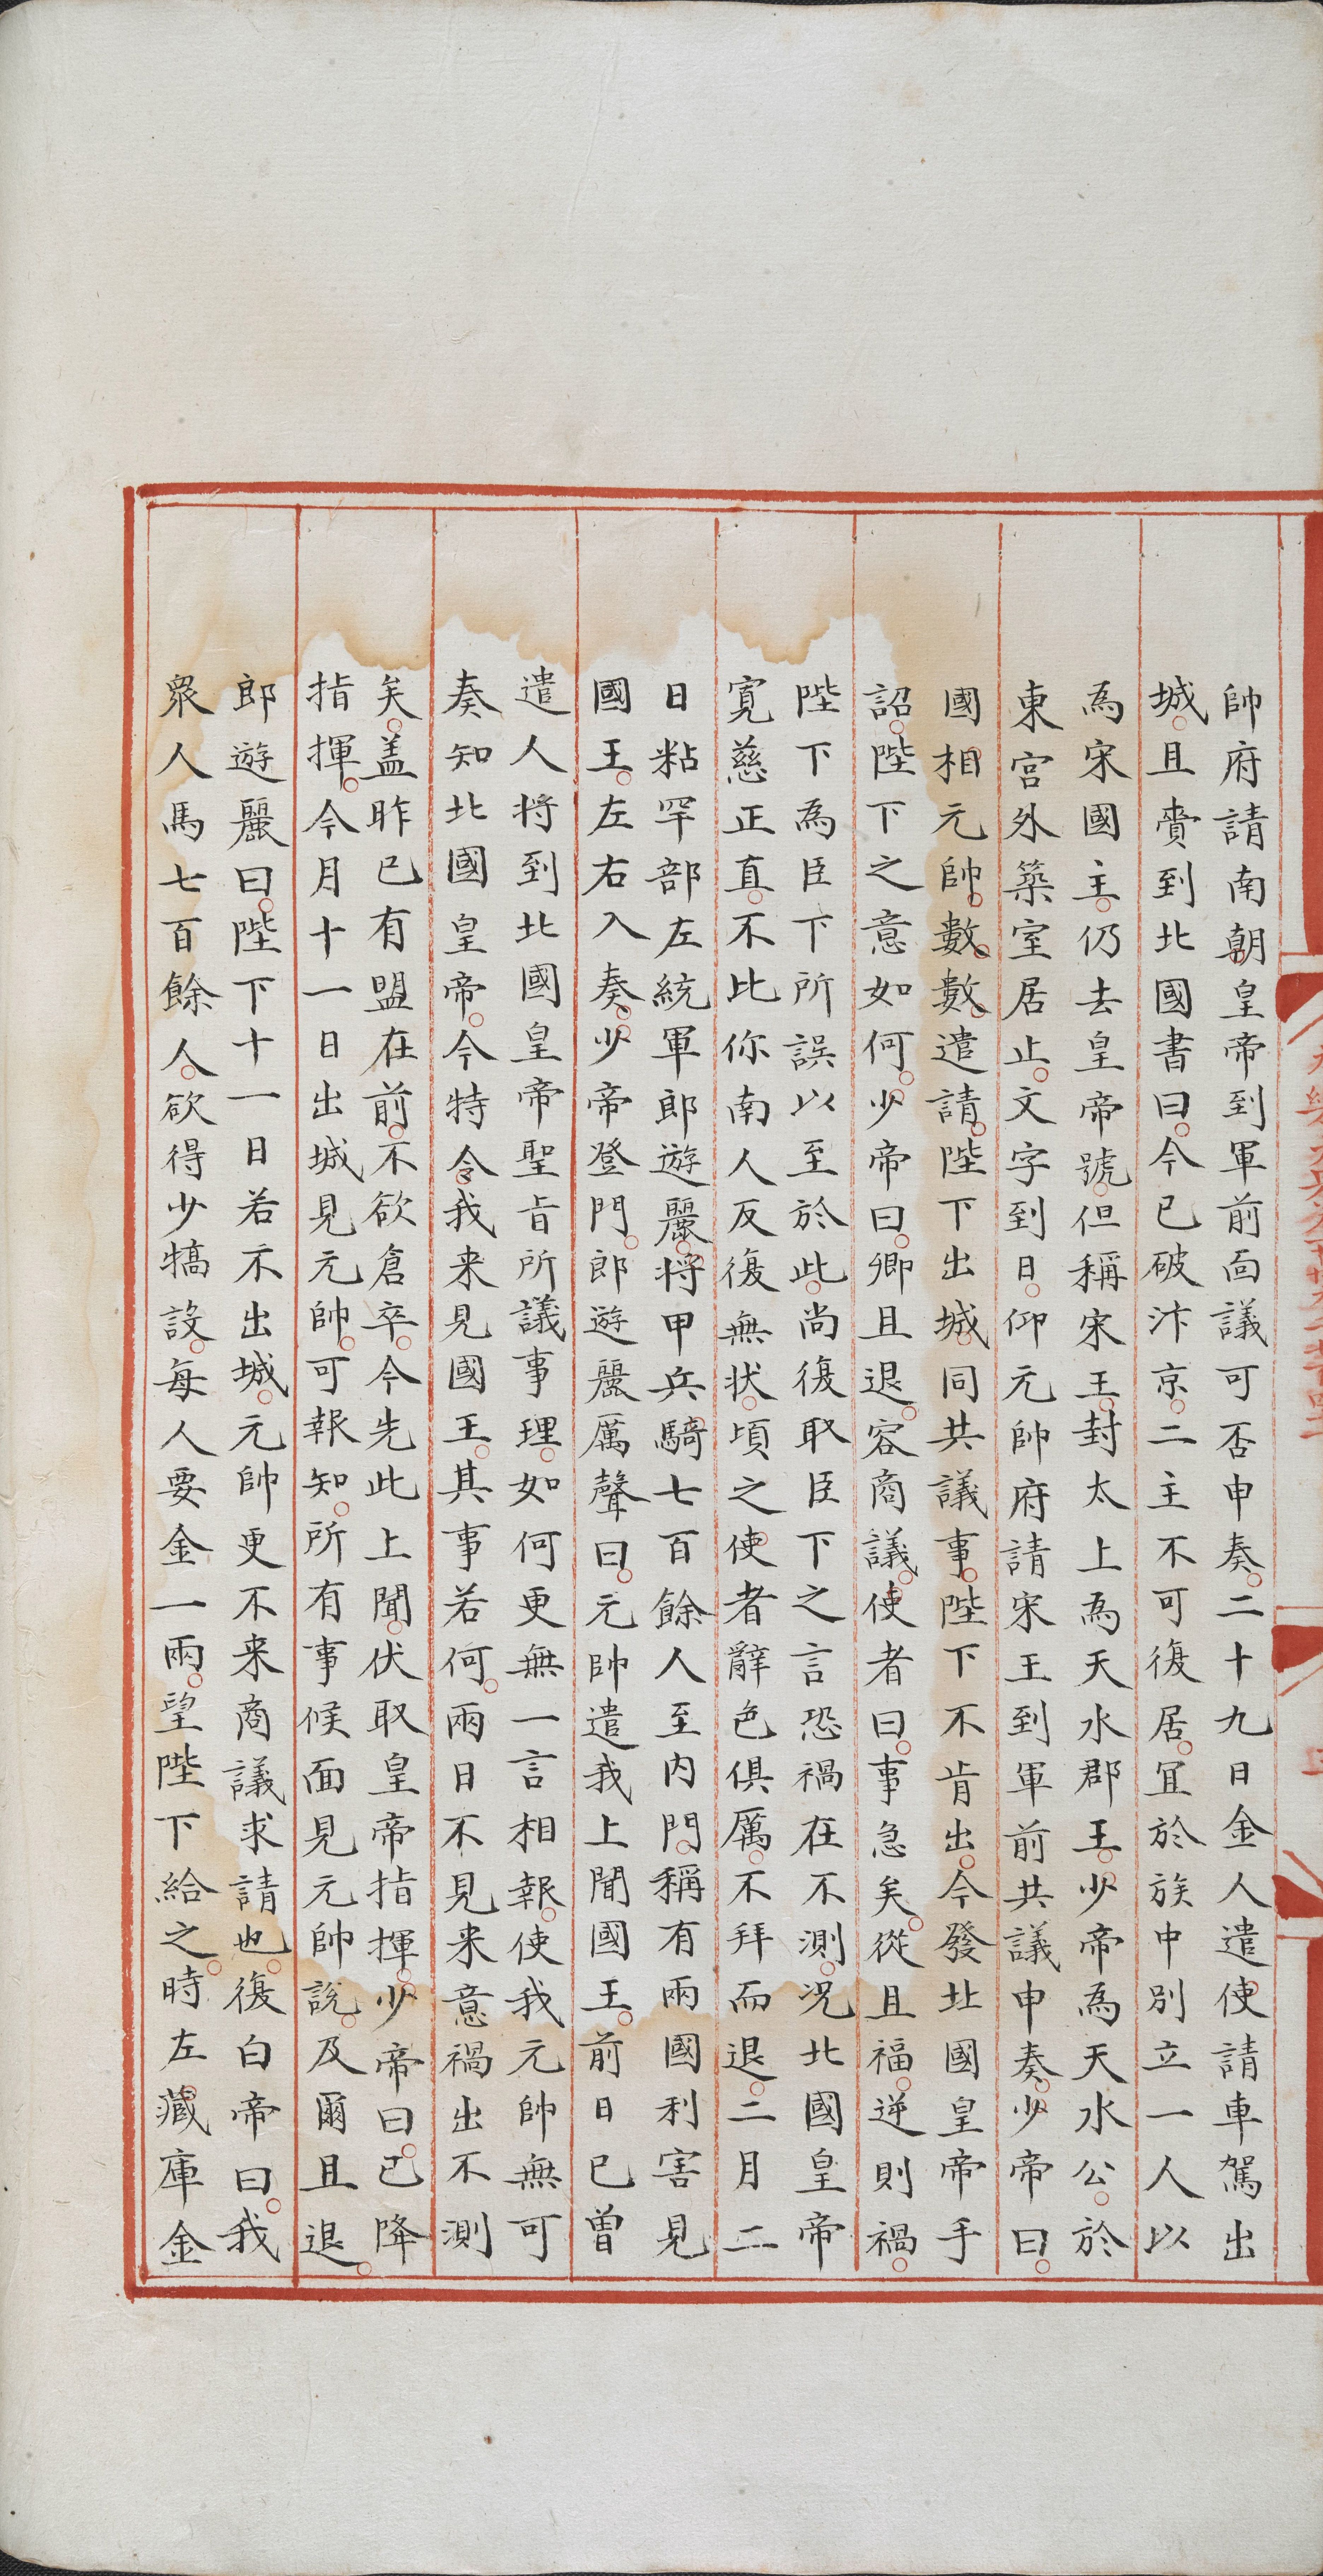 帥府請南朝皇帝到軍前面議可否申奏二十九日金人遣使請車駕出
城且賫到北國書曰今已破汴京二主不可復居宜於族中別立一人以
為宋國主仍去皇帝號但稱宋王封太上為天水郡王少帝為天水公於
東宮外築室居止文字到日仰元帥府請宋王到軍前共議申奏少帝曰
國相元帥數數遣請陛下出城同共議事陛下不肯出今發北國皇帝手
詔陛下之意如何少帝曰卿且退容商議使者曰事急矣從且福逆則禍
陛下為臣下所誤以至於此尚復取臣下之言恐禍在不測況北國皇帝
寛慈正直不比你南人反復無状頃之使者辭色俱厲不拜而退二月二
日粘罕部左統軍郎遊麗將甲兵騎七百餘人至内門稱有兩國利害見
國王左右入奏少帝登門郎遊麗厲聲曰元帥遣我上聞國王前日已曽
遣人将到北國皇帝聖旨所議事理如何更無一言相報使我元帥無可
奏知北國皇帝今特令我来見國王其事若何兩日不見来意禍出不測
矣盖昨已有盟在前不欲倉卒今先此上聞伏取皇帝指揮少帝曰已降
指揮今月十一日出城見元帥可報知所有事候面見元帥說及爾且退
郎遊麗曰陛下十一日若不出城元帥更不来商議求請也復白帝曰我
衆人馬七百餘人欲得少犒設每人要金一兩望陛下給之時左藏庫金